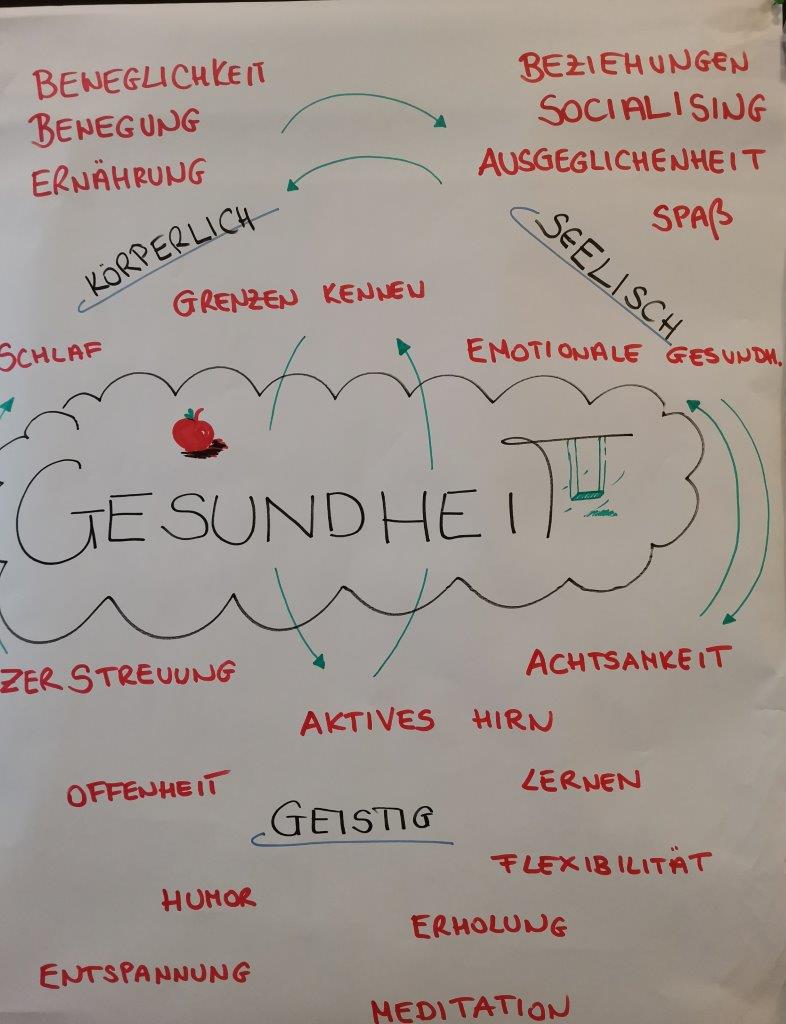 BENEGLICHKEIT
BENEGUNG
ERNÄHRUNG
KÖRPERLICH
BEZIEHUNGEN
SOCIALISING
AUSGEGLICHENHEIT
SPAß
SEELISCH
GRENZEN KENNEN
SCHLAF
EMOTIONALE GESUNDH.
GESUNDHEIT
ZERSTREUUNG
ACHTSAMKEIT
AKTIVES HIRN
OFFENHEIT
LERNEN
GEISTIG
FLEXIBILITÄT
HUMOR
ERHOLUNG
ENTSPANNUNG
MEDITATION